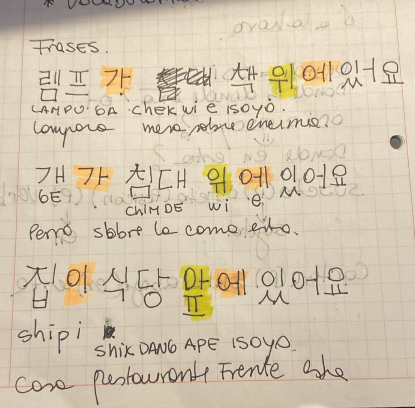 Frases.
렘프가 책 위에 있어요
LAMPU·GA CHEK WI E ISOYO.
lampara mesa sobre encima.
개가 침대 위에 있어요
GE CHIMDE wi e
perro sobre la cama esta.
집이 식당 앞에 있어요
shipi SHIK DANG APE ISOYO.
casa restaurante Frente esta